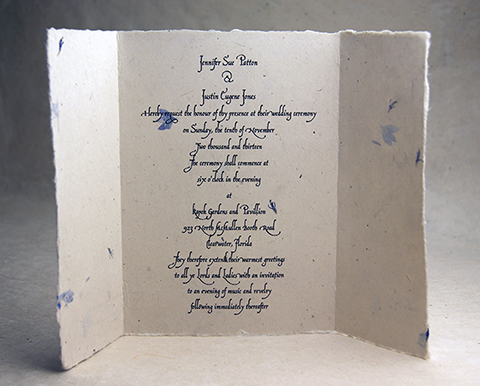 Jennifer Sue Patton
&
Justin Eugene Jones
Hereby request the honour of thy presence at their wedding ceremony
on Sunday, the tenth of November
Two thousand and thirteen
The ceremony shall commence at
six o'clock in the evening
at
Kapok Gardens and Pavillion
923 North McMullen Booth Road
Clearwater, Florida
They therefore extend their warmest greetings
to all ye Lords and Ladies with an invitation
to an evening of music and revelry
following immediately thereafter